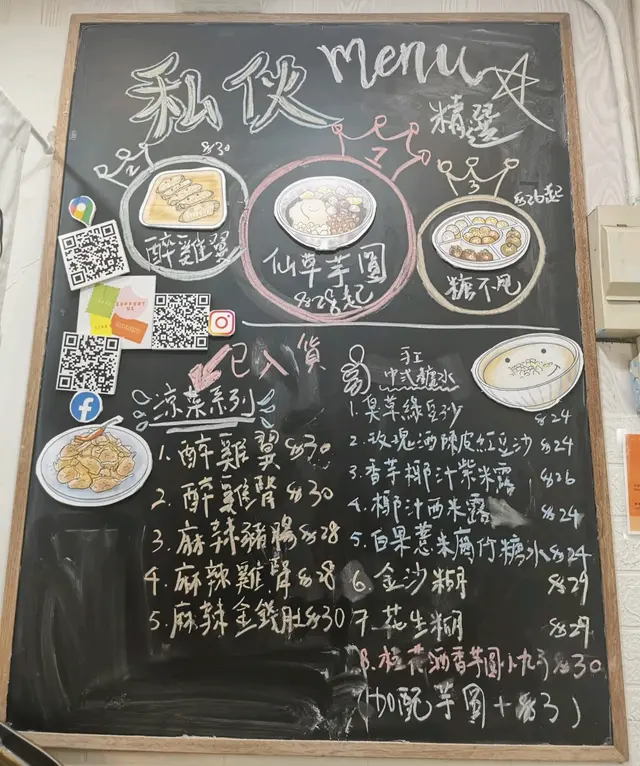 私伙 menu
精選
2
$30
醉雞翼
1
仙草芋圓
$28起
3
$26起
糖不甩
SUPPORT
US
已入貨
涼菜系列
1. 醉雞翼 $30
2. 醉雞腎 $30
3. 麻辣豬腸 $28
4. 麻辣雞腎 $28
5. 麻辣金錢肚 $30
手工
中式糖水
1. 臭草綠豆沙 $24
2. 玫瑰酒陳皮紅豆沙 $24
3. 香芋椰汁紫米露 $26
4. 椰汁西米露 $24
5. 白果薏米腐竹糖水 $24
6. 金沙糊 $29
7. 花生糊 $29
8. 桂花酒香芋圓小丸子 $30
(加配芋圓+$3)